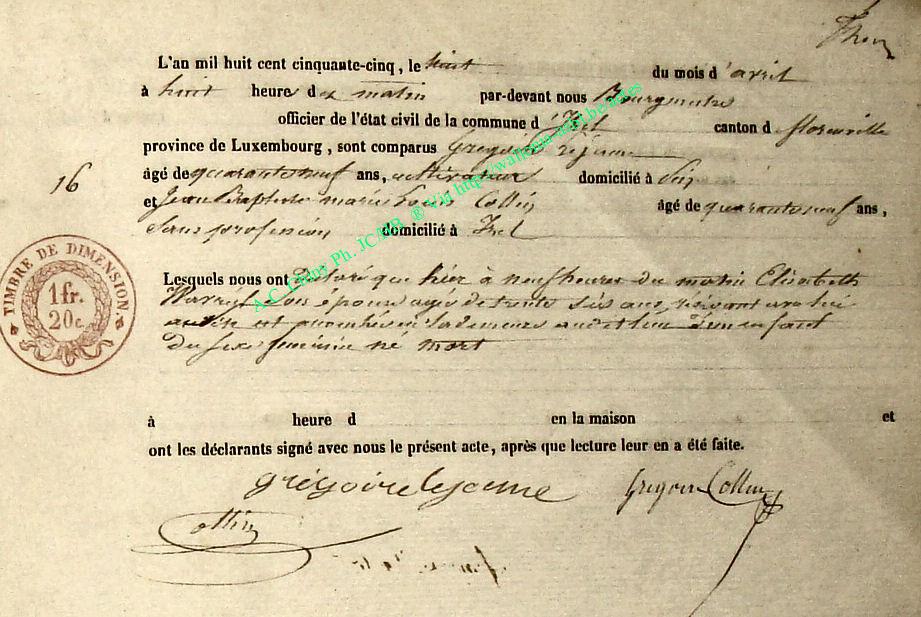 L'an mil huit cent cinquante-cinq, le huit du mois d'avril
à huit heures d matin par-devant nous Bourgmestre
officier de l'état civil de la commune d' Izel canton d florenville
province de Luxembourg, sont comparus Gregoire lejeune
âgé de quaranteneuf ans, cultivateur domicilié à
16
et Jean Baptiste marie Louis Collin âgé de quaranteneuf ans,
Sans profession domicilié à Izel
Lesquels nous ont declaré que hier à neuf heures du matin Elisabeth
son épouse agée de trente six ans, vivant avec lui
est accouchée en sa demeure audit lieu d'un enfant
du sexe feminin ne mort
TIMBRE DE DIMENSION.
1 fr.
20 c.
à heure d en la maison et
ont les déclarants signé avec nous le présent acte, après que lecture leur en a été faite.
grégoire lejeune Gregoire Collin
Collin
A.C. Chiny Ph. JC/MB ® Via http://wallonia-asbl.be/actes